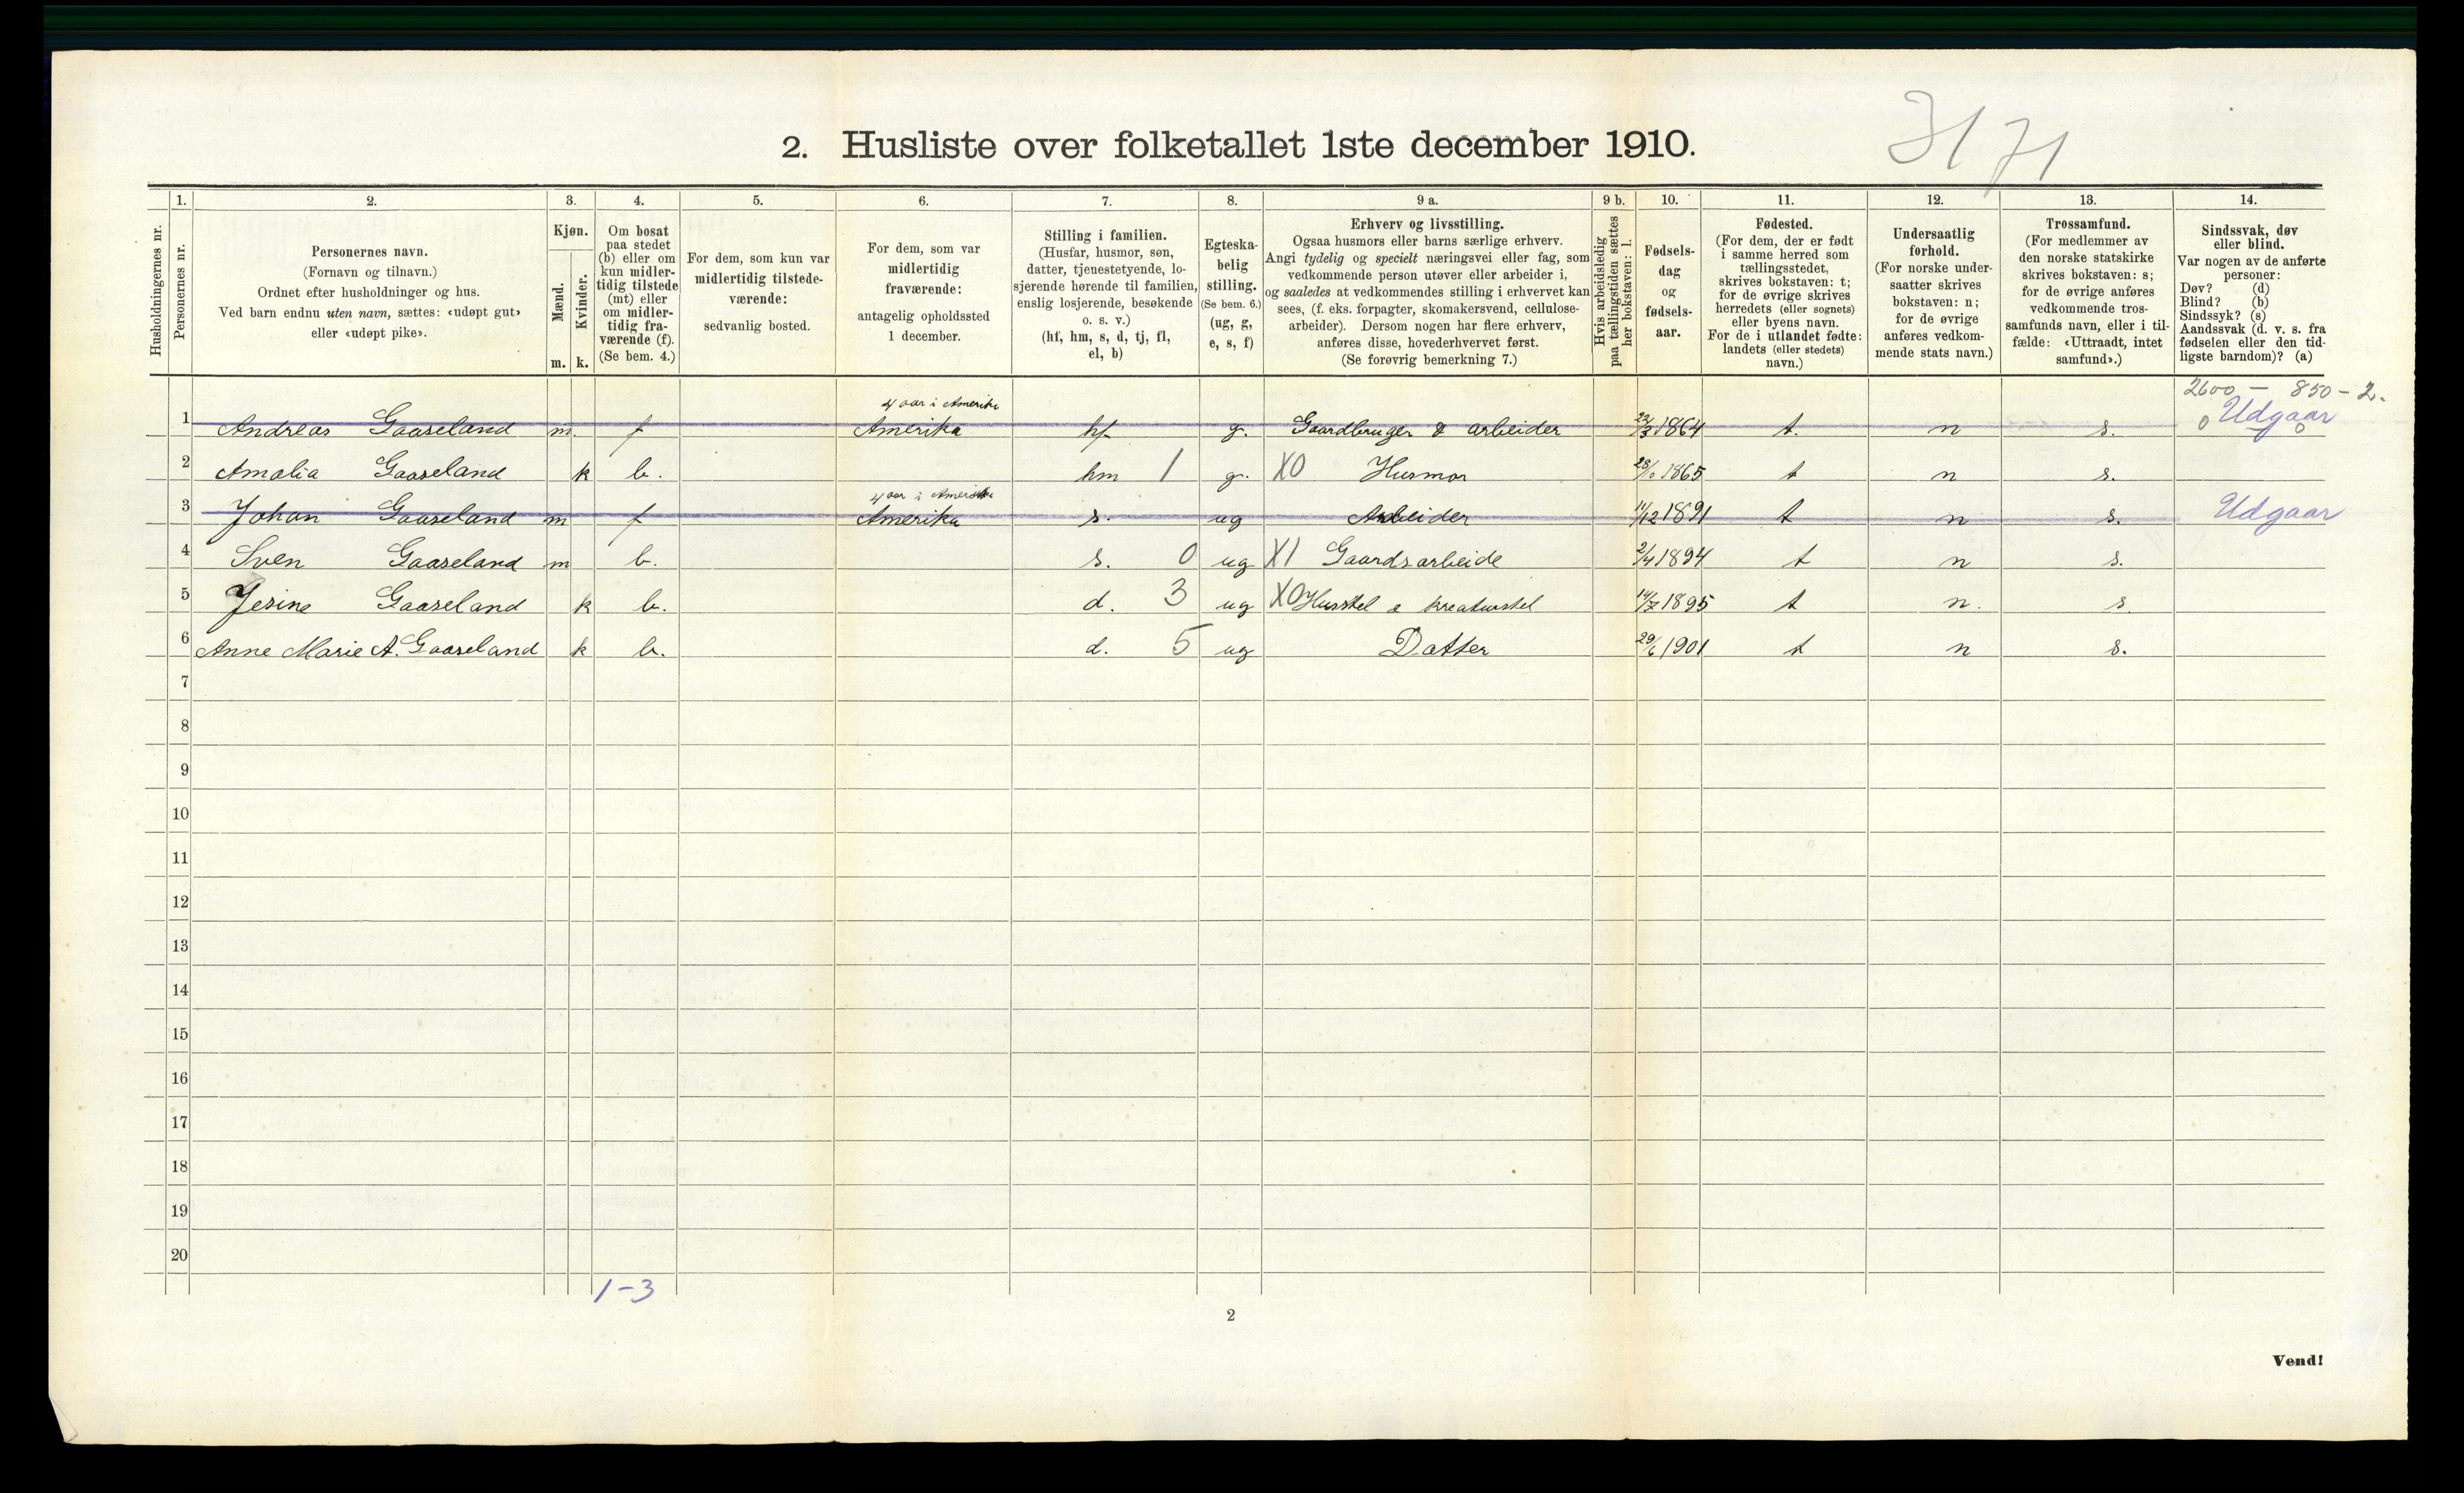 2. Husliste over folketallet 1ste december 1910.
1. 2. 3. 4. 5. 6. 7. 8. 9 a. 9 b. 10. 11. 12. 13. 14.
Husholdningernes nr.
Personernes nr.
Personernes navn.
(Fornavn og tilnavn.)
Ordnet efter husholdninger og hus.
Ved barn endnu uten navn, sættes: «udøpt gut»
eller «udøpt pike».
Kjøn.
Mænd.
Kvinder.
m. k.
Om bosat
paa stedet
(b) eller om
kun midler-
tidig tilstede
(mt) eller
om midler-
tidig fra-
værende (f).
(Se bem. 4.)
For dem, som kun var
midlertidig tilstede-
værende:
sedvanlig bosted.
For dem, som var
midlertidig
fraværende:
antagelig opholdssted
1 december.
Stilling i familien.
(Husfar, husmor, søn,
datter, tjenestetyende, lo-
sjerende hørende til familien,
enslig losjerende, besøkende
o. s. v.)
(hf, hm, s, d, tj, fl,
el, b)
Egteska-
belig
stilling.
(Se bem. 6.)
(ug, g,
e, s, f)
Erhverv og livsstilling.
Ogsaa husmors eller barns særlige erhverv.
Angi tydelig og specielt næringsvei eller fag, som
vedkommende person utøver eller arbeider i,
og saaledes at vedkommendes stilling i erhvervet kan
sees, (f. eks. forpagter, skomakersvend, cellulose-
arbeider). Dersom nogen har flere erhverv,
anføres disse, hovederhvervet først.
(Se forøvrig bemerkning 7.)
Hvis arbeidsledig
paa tællingstiden sættes
her bokstaven: l.
Fødsels-
dag
og
fødsels-
aar.
Fødested.
(For dem, der er født
i samme herred som
tællingsstedet,
skrives bokstaven: t;
for de øvrige skrives
herredets (eller sognets)
eller byens navn.
For de i utlandet fødte:
landets (eller stedets)
navn.)
Undersaatlig
forhold.
(For norske under-
saatter skrives
bokstaven: n;
for de øvrige
anføres vedkom-
mende stats navn.)
Trossamfund.
(For medlemmer av
den norske statskirke
skrives bokstaven: s;
for de øvrige anføres
vedkommende tros-
samfunds navn, eller i til-
fælde: «Uttraadt, intet
samfund».)
Sindssvak, døv
eller blind.
Var nogen av de anførte
personer:
Døv? (d)
Blind? (b)
Sindssyk? (s)
Aandssvak (d. v. s. fra
fødselen eller den tid-
ligste barndom)? (a)
2600 - 850 - 2.
4 aar i Amerika
1 Andreas Gaaseland m. f Amerika hf g. Gaardbruger & arbeider 22/3 1864 t. n s. 0 Udgaar 0
2 Amalia Gaaseland k b. hm 1 g. X0 Husmor 1865 t n s.
4 aar i Amerika
3 Johan Gaaseland m f Amerika s. ug Arbeider 14/12 1891 t n s. Udgaar
4 Sven Gaaseland m b. s. 0 ug X1 Gaardsarbeide 2/4 1894 t n s.
5 Jesine Gaaseland k b. d. 3 ug X0 Husstel & kreaturstel 1895 t n. s.
6 Anne Marie A. Gaaseland k b. d. 5 ug Datter 29/6 1901 t n s.
7
8
9
10
11
12
13
14
15
16
17
18
19
20
1-3
2
Vend!